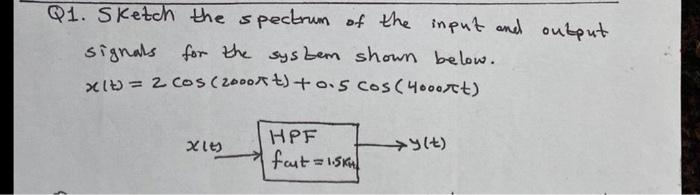 Q1. Sketch the spectrum of the input and output
signals for the system shown below.
x(t) = 2 cos(2000πt) + 0.5 cos(4000πt)
x(t) HPF y(t)
fcut = 1.5KHz